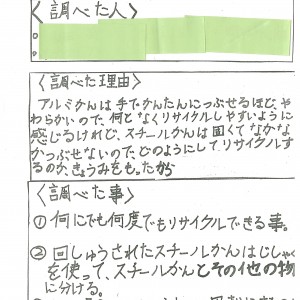 〈調べた人〉
〈調べた理由〉
アルミかんは手でかんたんにつぶせるほど、や
わらかいので、何となくリサイクルしやすいように
感じるけれど、スチールかんは固くてなかな
かつぶせないので、どのようにしてリサイクルす
るのか、きょうみをもったから
〈調べた事〉
①何にでも何度でもリサイクルできる事。
②回しゅうされたスチールかんはじしゃく
を使って、スチールかんとその他の物
に分ける。